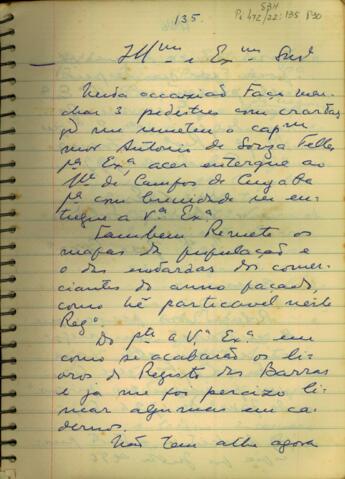 135.
SBH
Pi 472/22:135 P30
Illmo e Exmo Snr
Nesta occazião Faço mar
char 3 pedestres com crartas
q me remeteu o capm
mor Antonio de Souza Telles
pa Exa acer entergue ao
Me de Campos de Cuyaba
pa com brevidade ser en-
tregue a Va Exa
Tambem Remeto os
mapas da população e
o das entardas dos comer-
ciantes do anno paçado,
como hé particavel neste
Rego
Do pte a Va Exa em
como se acabarão os li-
vros do Registo das Barras
e ja me foi percizo
algumas em ca-
dernos.
Não tem athe agora